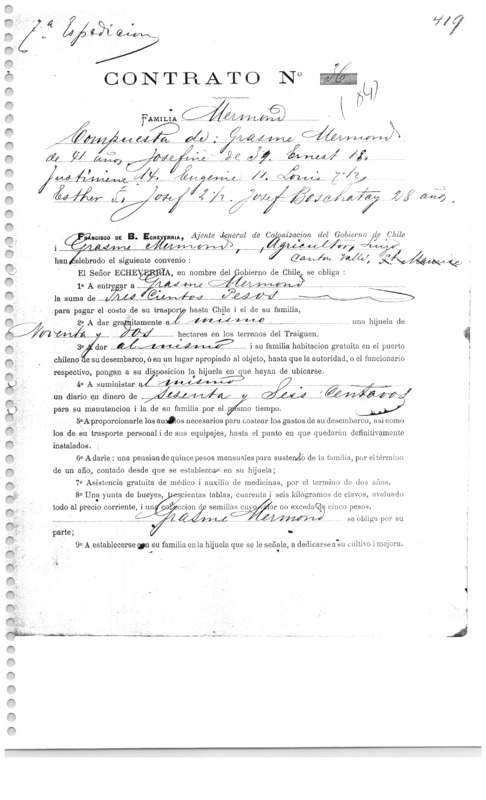 7ª Espedicion
419
CONTRATO Nº 36
(84)
FAMILIA Mermond
Compuesta de: Grasme Mermond
de 41 años, Josefine de 39. Ernest 18.
Justimiene 14. Eugenie 11. Louis 7 1/2,
Esther 5. Josef 2 1/2. Josef Boschatay 28 años.
FRANCISCO DE B. ECHEVERRIA, Ajente Jeneral de Colonizacion del Gobierno de Chile
i Grasme Mermond, Agricultor, suizo
han celebrado el siguiente convenio: Canton Valle, St. Maurice
El Señor ECHEVERRÍA, en nombre del Gobierno de Chile, se obliga:
1º A entregar a Grasme Mermond
la suma de Tres Cientos Pesos
para pagar el costo de su trasporte hasta Chile i el de su familia,
2º A dar gratuitamente al mismo una hijuela de
Noventa y dos hectares en los terrenos del Traiguen.
3º A dar al mismo i su familia habitacion gratuita en el puerto
chileno de su desembarco, ó en un lugar apropiado al objeto, hasta que la autoridad, o el funcionario
respectivo, pongan a su disposicion la hijuela en que hayan de ubicarse.
4º A suministar al mismo
un diario en dinero de Sesenta y Seis Centavos
para su manutencion i la de su familia por el mismo tiempo.
5º A proporcionarle los auxilios necesarios para costear los gastos de su desembarco, asi como
los de su trasporte personal i de sus equipajes, hasta el punto en que quedarán definitivamente
instalados.
6º A darle: una pension de quince pesos mensuales para sustento de la familia, por el término
de un año, contado desde que se establezca en su hijuela;
7º Asistencia gratuita de médico i auxilio de medicinas, por el termino de dos años.
8º Una yunta de bueyes, trescientas tablas, cuarenta i seis kilógramos de clavos, avaluado
todo al precio corriente, i una coleccion de semillas cuyo valor no exceda de cinco pesos.
Grasme Mermond se obliga por su
parte;
9º A establecerse con su familia en la hijuela que se le señale, a dedicarse a su cultivo i mejora.